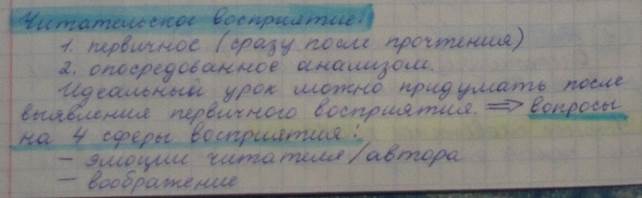 Читательское восприятие:
1. первичное (сразу после прочтения)
2. опосредованное анализом.
Идеальный урок можно придумать после
выявления первичного восприятия. => вопросы
на 4 сферы восприятия:
– эмоции читателя/автора
– воображение